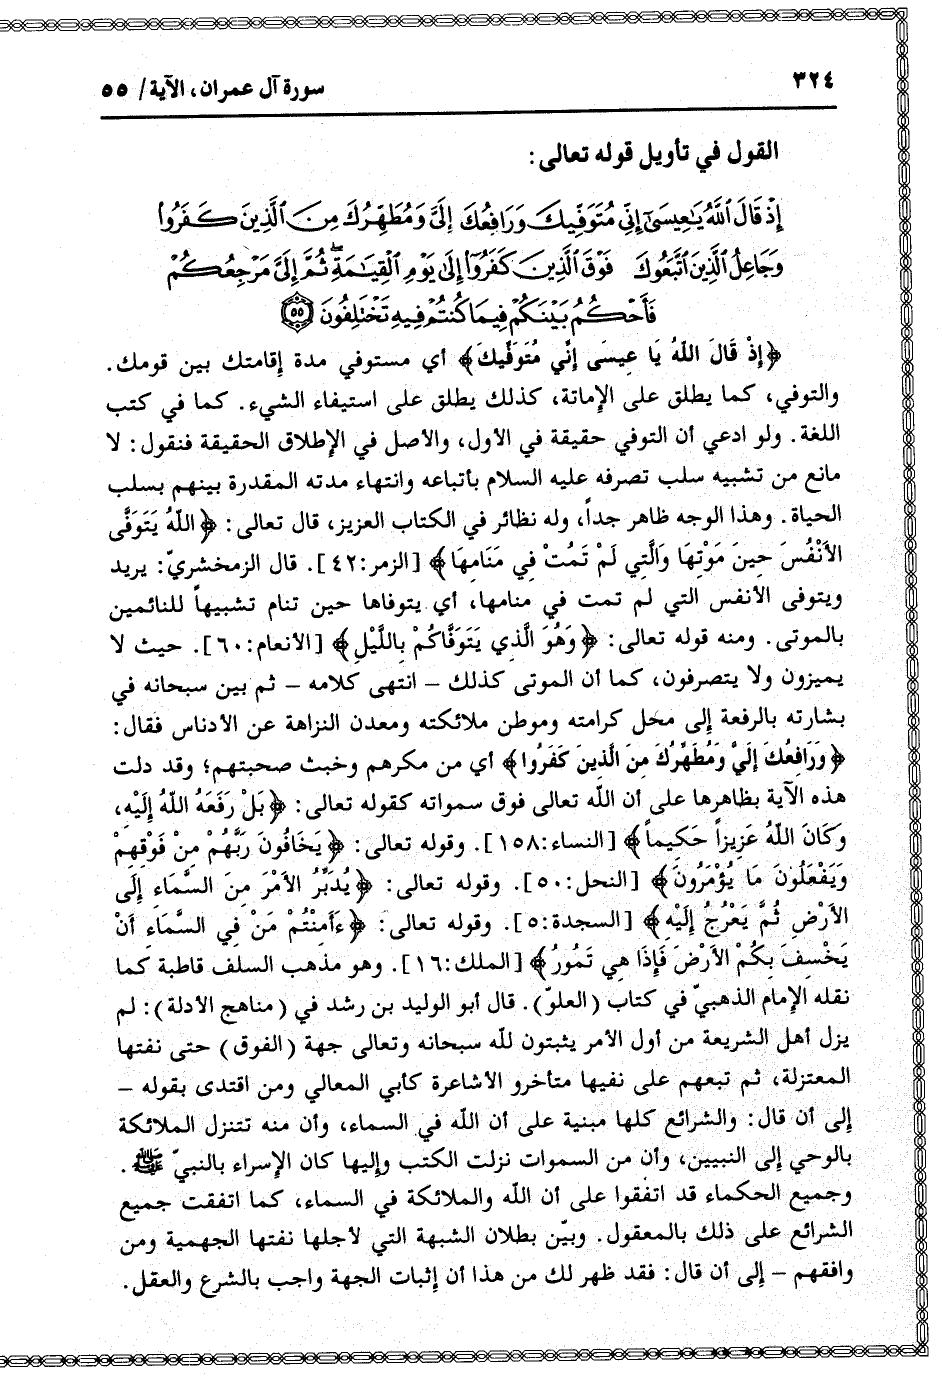 ٣٢٤
سورة آل عمران، الآية/ ٥٥
القول في تأويل قوله تعالى:
إِذْ قَالَ ٱللَّهُ يَٰعِيسَىٰٓ إِنِّي مُتَوَفِّيكَ وَرَافِعُكَ إِلَيَّ وَمُطَهِّرُكَ مِنَ ٱلَّذِينَ كَفَرُوا۟
وَجَاعِلُ ٱلَّذِينَ ٱتَّبَعُوكَ فَوْقَ ٱلَّذِينَ كَفَرُوٓا۟ إِلَىٰ يَوْمِ ٱلْقِيَٰمَةِ ۖ ثُمَّ إِلَيَّ مَرْجِعُكُمْ
فَأَحْكُمُ بَيْنَكُمْ فِيمَا كُنتُمْ فِيهِ تَخْتَلِفُونَ ٥٥
﴿إِذْ قَالَ اللَّهُ يَا عِيسَى إِنِّي مُتَوَفِّيكَ﴾ أي مستوفي مدة إقامتك بين قومك.
والتوفي، كما يطلق على الإماتة، كذلك يطلق على استيفاء الشيء. كما في كتب
اللغة. ولو ادعي أن التوفي حقيقة في الأول، والأصل في الإطلاق الحقيقة فنقول: لا
مانع من تشبيه سلب تصرفه عليه السلام بأتباعه وانتهاء مدته المقدرة بينهم بسلب
الحياة. وهذا الوجه ظاهر جداً، وله نظائر في الكتاب العزيز، قال تعالى: ﴿اللَّهُ يَتَوَفَّى
الأَنْفُسَ حِينَ مَوْتِهَا وَالَّتِي لَمْ تَمُتْ فِي مَنَامِهَا﴾ [الزمر:٤٢]. قال الزمخشريّ: يريد
ويتوفى الأنفس التي لم تمت في منامها، أي يتوفاها حين تنام تشبيهاً للنائمين
بالموتى. ومنه قوله تعالى: ﴿وَهُوَ الَّذِي يَتَوَفَّاكُمْ بِاللَّيْلِ﴾ [الأنعام:٦٠]. حيث لا
يميزون ولا يتصرفون، كما أن الموتى كذلك – انتهى كلامه – ثم بين سبحانه في
بشارته بالرفعة إلى محل كرامته وموطن ملائكته ومعدن النزاهة عن الأدناس فقال:
﴿وَرَافِعُكَ إِلَيَّ وَمُطَهِّرُكَ مِنَ الَّذِينَ كَفَرُوا﴾ أي من مكرهم وخبث صحبتهم؛ وقد دلت
هذه الآية بظاهرها على أن الله تعالى فوق سمواته كقوله تعالى: ﴿بَلْ رَفَعَهُ اللَّهُ إِلَيْهِ،
وَكَانَ اللَّهُ عَزِيزاً حَكِيماً﴾ [النساء:١٥٨]. وقوله تعالى: ﴿يَخَافُونَ رَبَّهُمْ مِنْ فَوْقِهِمْ
وَيَفْعَلُونَ مَا يُؤْمَرُونَ﴾ [النحل:٥٠]. وقوله تعالى: ﴿يُدَبِّرُ الأَمْرَ مِنَ السَّمَاءِ إِلَى
الأَرْضِ ثُمَّ يَعْرُجُ إِلَيْهِ﴾ [السجدة:٥]. وقوله تعالى: ﴿ءَأَمِنْتُمْ مَنْ فِي السَّمَاءِ أَنْ
يَخْسِفَ بِكُمْ الأَرْضَ فَإِذَا هِي تَمُورُ﴾ [الملك:١٦]. وهو مذهب السلف قاطبة كما
نقله الإمام الذهبيّ في كتاب (العلوّ). قال أبو الوليد بن رشد في (مناهج الأدلة): لم
يزل أهل الشريعة من أول الأمر يثبتون لله سبحانه وتعالى جهة (الفوق) حتى نفتها
المعتزلة، ثم تبعهم على نفيها متأخرو الأشاعرة كأبي المعالي ومن اقتدى بقوله –
إلى أن قال: والشرائع كلها مبنية على أن الله في السماء، وأن منه تتنزل الملائكة
بالوحي إلى النبيين، وأن من السموات نزلت الكتب وإليها كان الإسراء بالنبيّ ﷺ.
وجميع الحكماء قد اتفقوا على أن الله والملائكة في السماء، كما اتفقت جميع
الشرائع على ذلك بالمعقول. وبيّن بطلان الشبهة التي لأجلها نفتها الجهمية ومن
وافقهم – إلى أن قال: فقد ظهر لك من هذا أن إثبات الجهة واجب بالشرع والعقل.